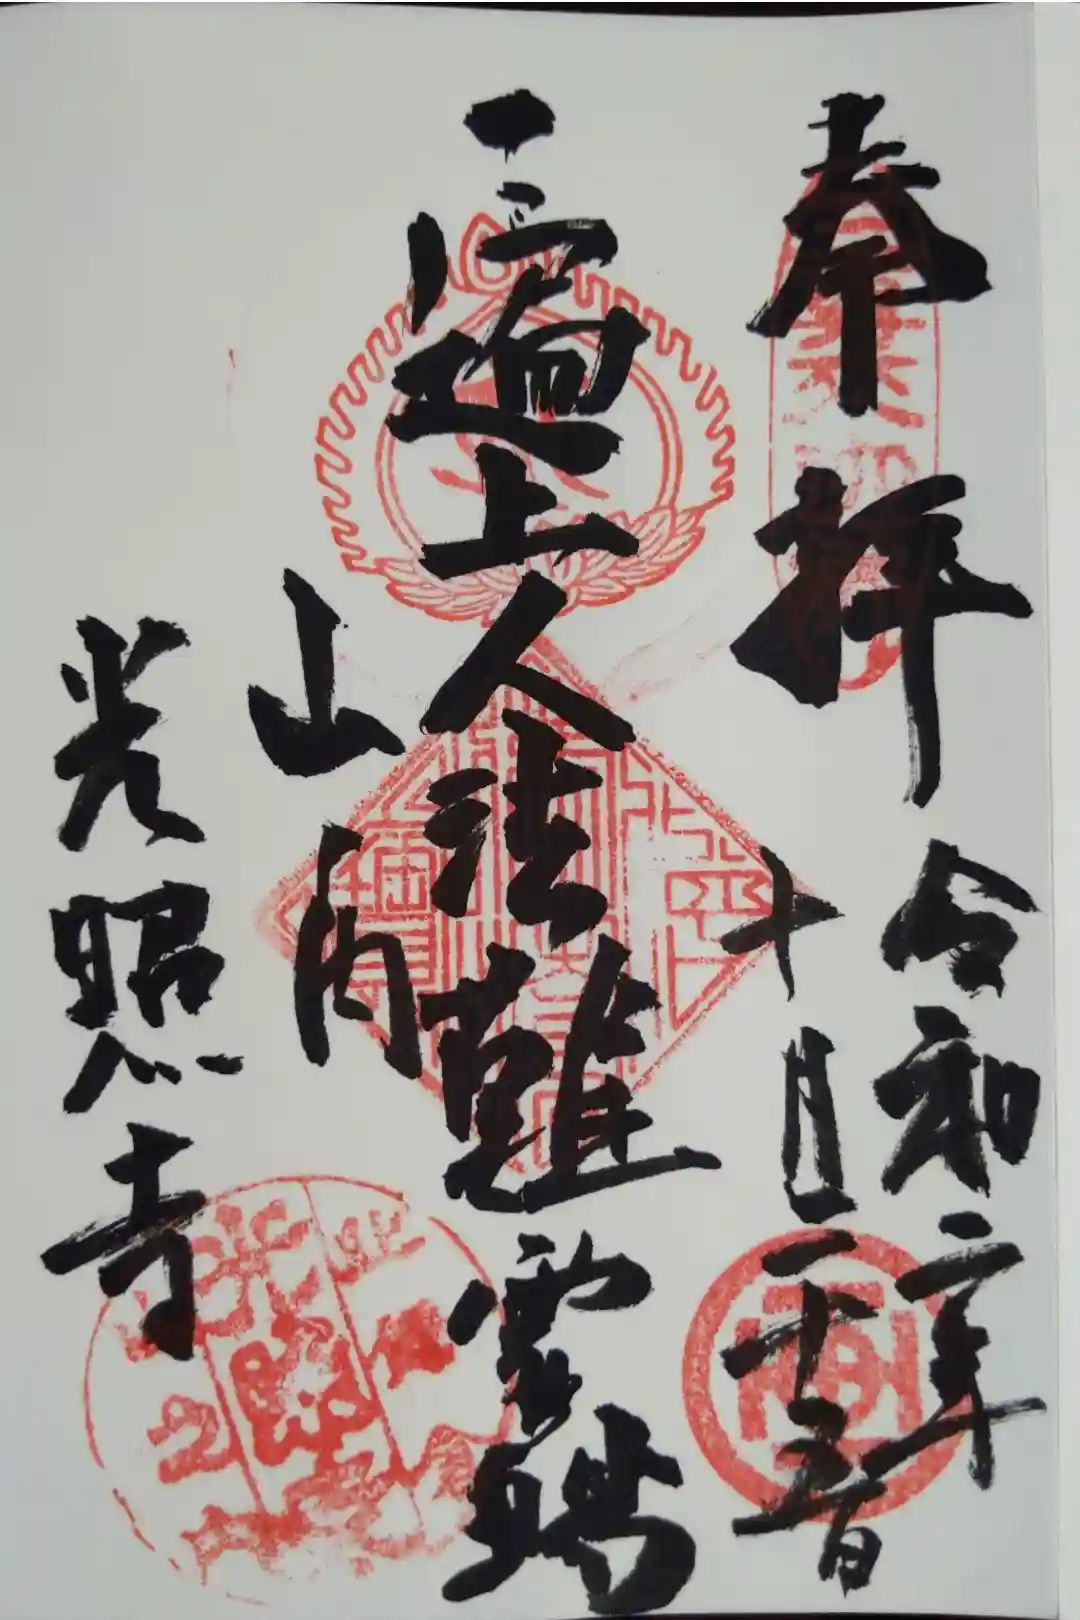 奉拝
令和二年
十月二十五日
一遍上人法難霊場
山内
光照寺